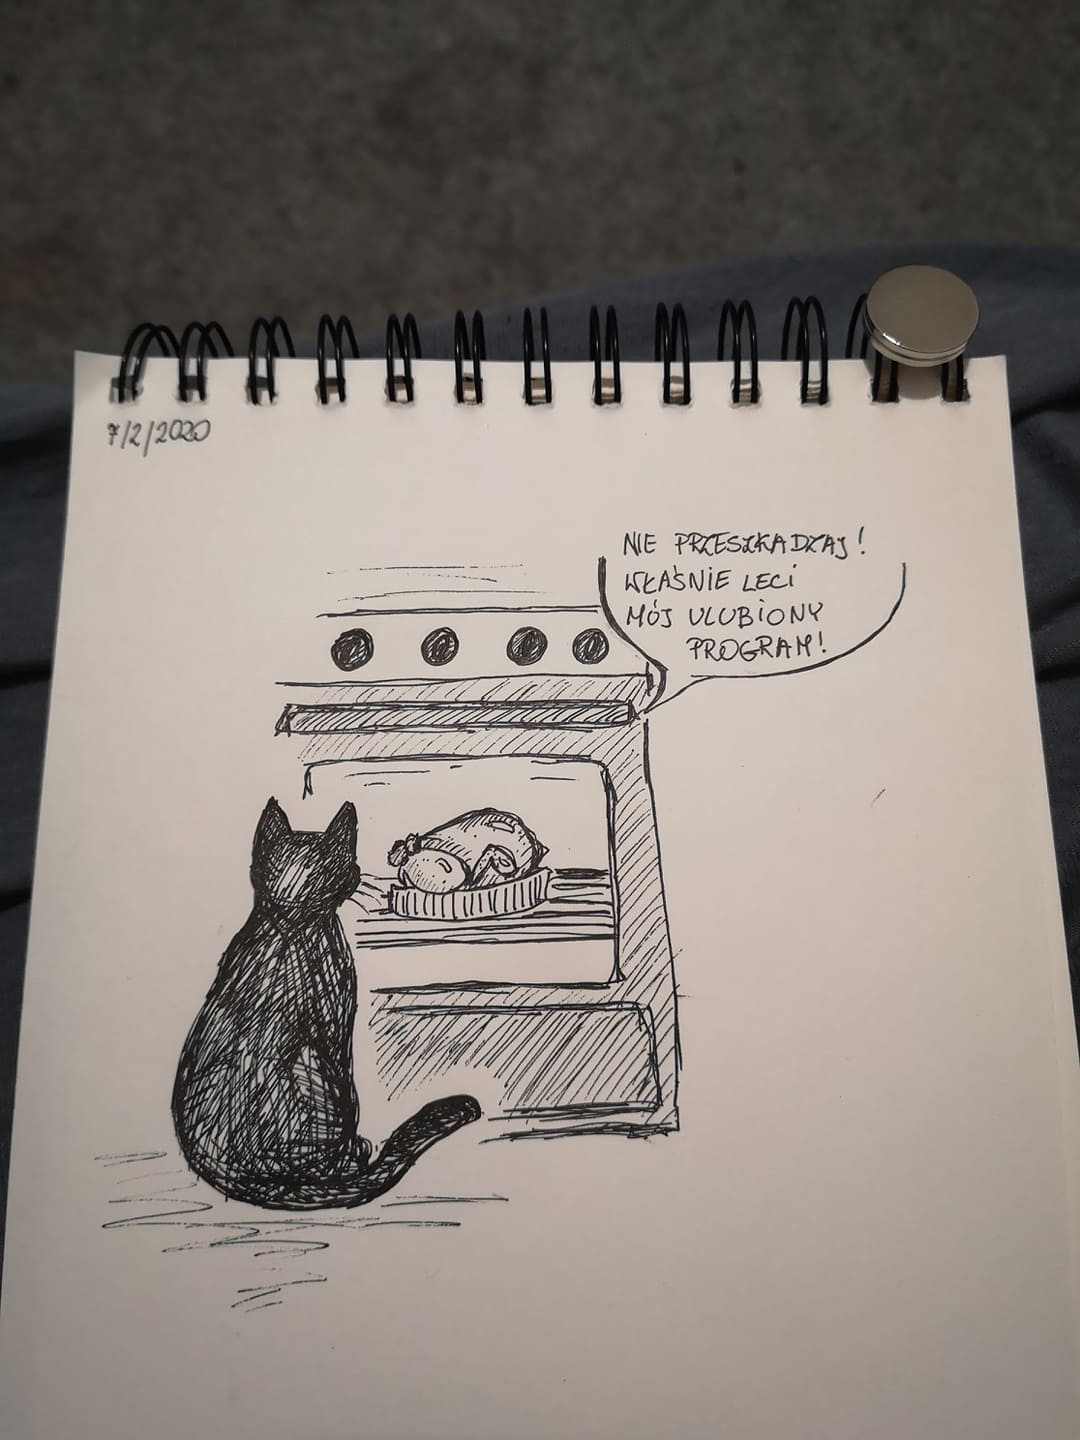 7/2/2020
NIE PRZESZKADZAJ!
WŁAŚNIE LECI
MÓJ ULUBIONY
PROGRAM!